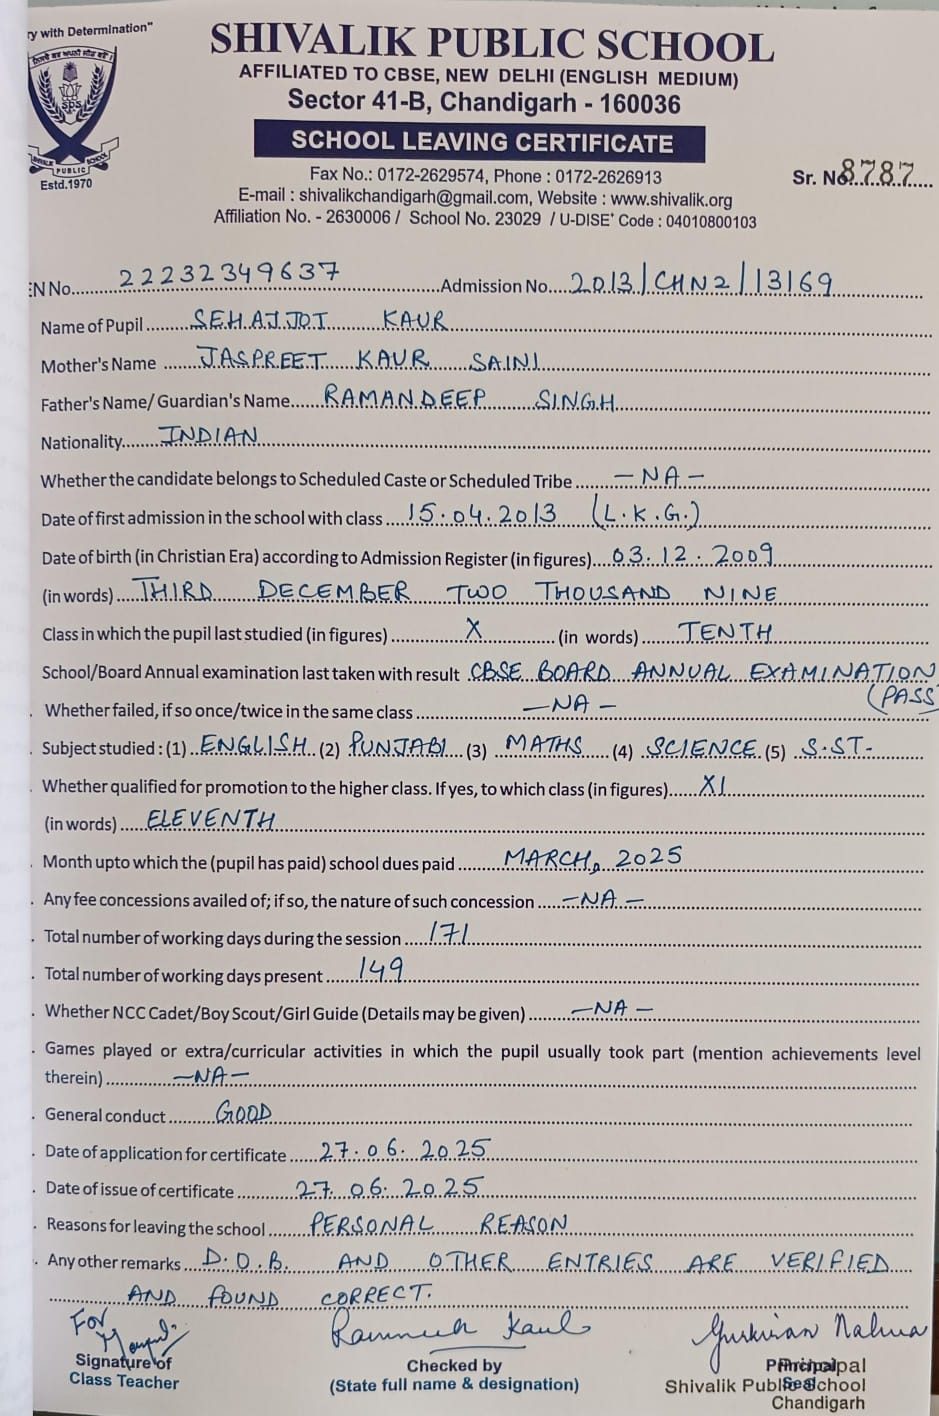 ry with Determination"
SHIVALIK PUBLIC SCHOOL
AFFILIATED TO CBSE, NEW DELHI (ENGLISH MEDIUM)
Sector 41-B, Chandigarh - 160036
SCHOOL LEAVING CERTIFICATE
sps
SHIVALIK PUBLIC SCHOOL
Estd.1970
Fax No.: 0172-2629574, Phone : 0172-2626913
Sr. No. 8787
E-mail : shivalikchandigarh@gmail.com, Website : www.shivalik.org
Affiliation No. - 2630006 / School No. 23029 / U-DISE+ Code : 04010800103
EN No. 22232349637 Admission No. 2013/CHN2/13169
Name of Pupil SEHAJJOT KAUR
Mother's Name JASPREET KAUR SAINI
Father's Name/ Guardian's Name RAMANDEEP SINGH
Nationality INDIAN
Whether the candidate belongs to Scheduled Caste or Scheduled Tribe -NA-
Date of first admission in the school with class 15.04.2013 (L.K.G.)
Date of birth (in Christian Era) according to Admission Register (in figures) 03.12.2009
(in words) THIRD DECEMBER TWO THOUSAND NINE
Class in which the pupil last studied (in figures) X (in words) TENTH
School/Board Annual examination last taken with result CBSE BOARD ANNUAL EXAMINATION
(PASS
Whether failed, if so once/twice in the same class -NA-
Subject studied : (1) ENGLISH (2) PUNJABI (3) MATHS (4) SCIENCE (5) S.ST-
Whether qualified for promotion to the higher class. If yes, to which class (in figures) XI
(in words) ELEVENTH
Month upto which the (pupil has paid) school dues paid MARCH, 2025
Any fee concessions availed of; if so, the nature of such concession -NA-
Total number of working days during the session 171
Total number of working days present 149
Whether NCC Cadet/Boy Scout/Girl Guide (Details may be given) -NA-
Games played or extra/curricular activities in which the pupil usually took part (mention achievements level
therein) -NA-
General conduct GOOD
Date of application for certificate 27.06.2025
Date of issue of certificate 27.06.2025
Reasons for leaving the school PERSONAL REASON
Any other remarks D.O.B. AND OTHER ENTRIES ARE VERIFIED
AND FOUND CORRECT.
For
Signature of
Class Teacher
Kaul
Checked by
(State full name & designation)
Principal
Principal
Seal
Shivalik Public School
Chandigarh